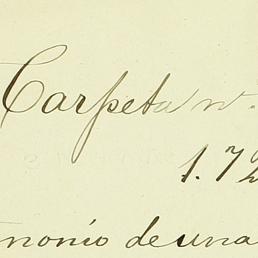 Carpeta n.
1.72
monio de una